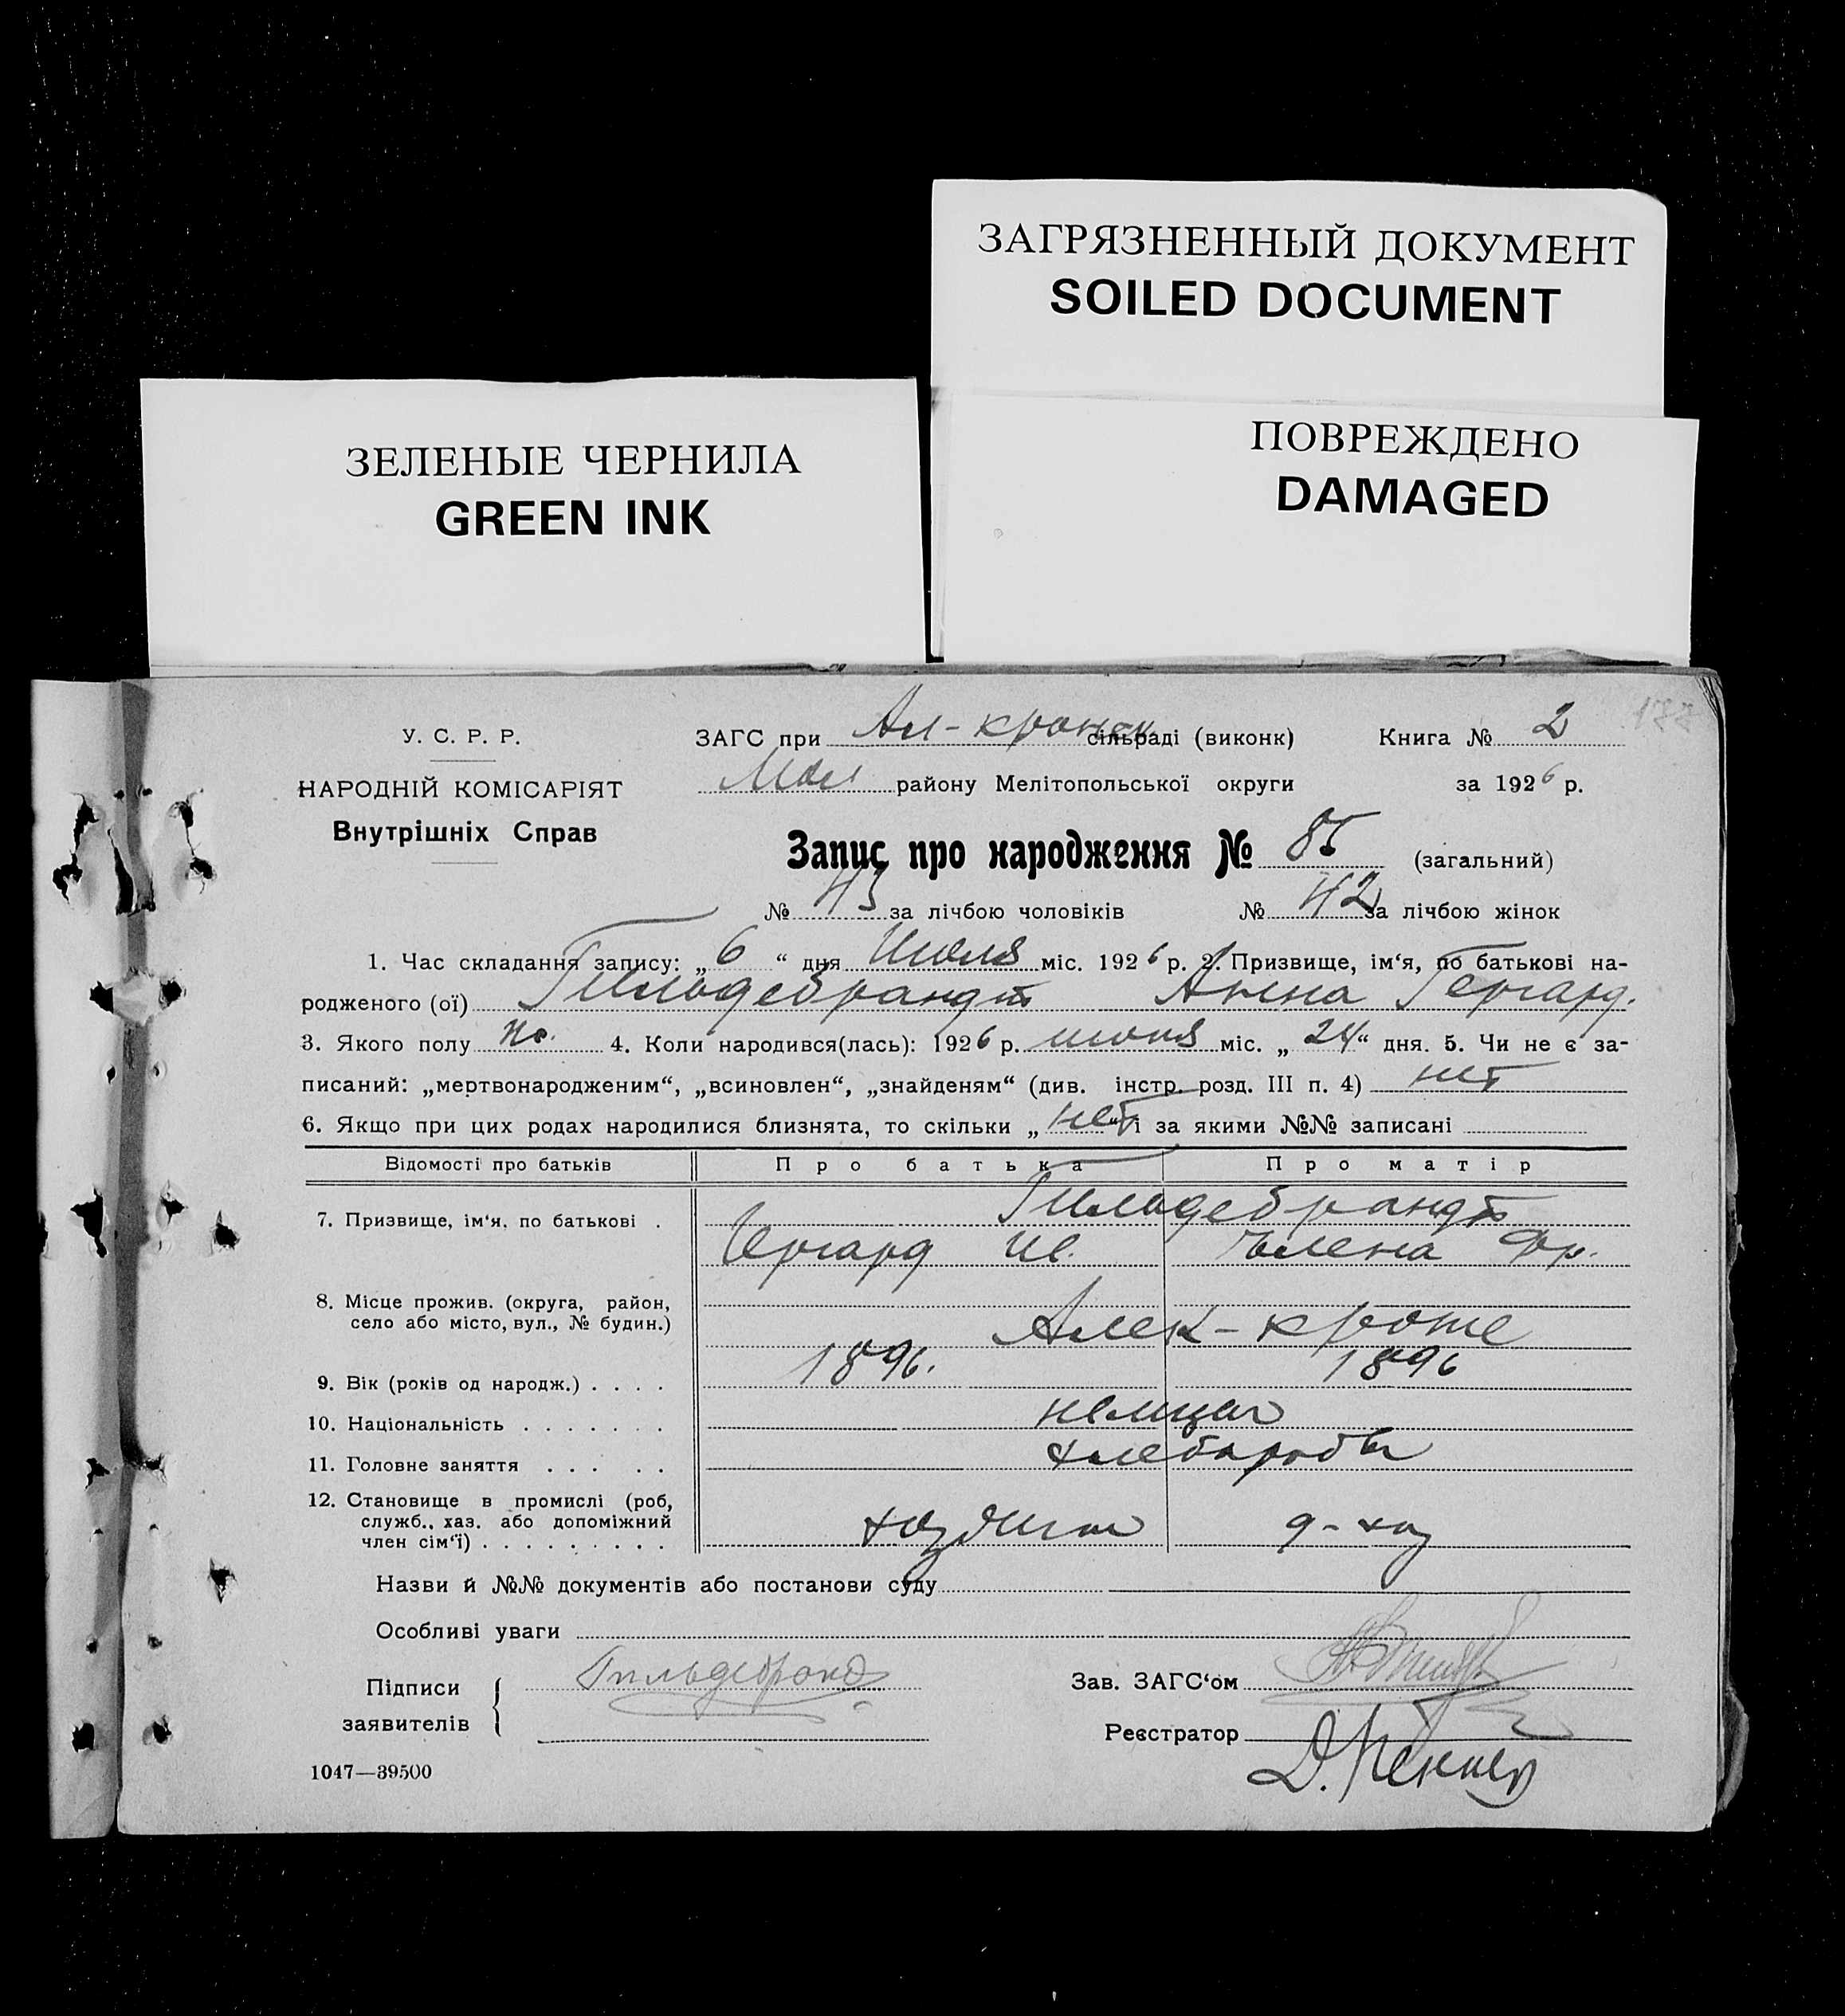 ЗАГРЯЗНЕННЫЙ ДОКУМЕНТ
SOILED DOCUMENT
ПОВРЕЖДЕНО
DAMAGED
ЗЕЛЕНЫЕ ЧЕРНИЛА
GREEN INK
177
У. С. Р. Р.
НАРОДНІЙ КОМІСАРІЯТ
Внутрішніх Справ
ЗАГС при Ал-кронск сільраді (виконк) Книга № 2
Мол району Мелітопольської округи за 1926 р.
Запис про народження № 85 (загальний)
№ 43 за лічбою чоловіків № 42 за лічбою жінок
1. Час складання запису: „6“ дня Июля міс. 1926 р. 2. Призвище, ім‘я, по батькові на-
родженого (ої) Гильдебрандт Анна Гергард.
3. Якого полу ж. 4. Коли народився(лась): 1926 р. июня міс. „24“ дня. 5. Чи не є за-
писаний: „мертвонародженим“, „всиновлен“, „знайденям“ (див. інстр. розд. III п. 4) нет
6. Якщо при цих родах народилися близнята, то скільки „нет“ і за якими №№ записані
Відомості про батьків Про батька Про матір
7. Призвище, ім‘я, по батькові . Гильдебрандт
Гергард Ив. Елена Фр.
8. Місце прожив. (округа, район,
село або місто, вул., № будин.) Алек-кроне
9. Вік (років од народж.) . . . . 1896. 1896
10. Національність . . . . . . . немцы
11. Головне заняття . . . . . хлеборобы
12. Становище в промислі (роб,
служб., хаз. або допоміжний
член сім‘ї) . . . . . . . . . хозяин д-хоз
Назви й №№ документів або постанови суду
Особливі уваги
Підписи
заявителів Гильдебранд
Зав. ЗАГС‘ом
Реєстратор Д. Пеннер
1047—39500